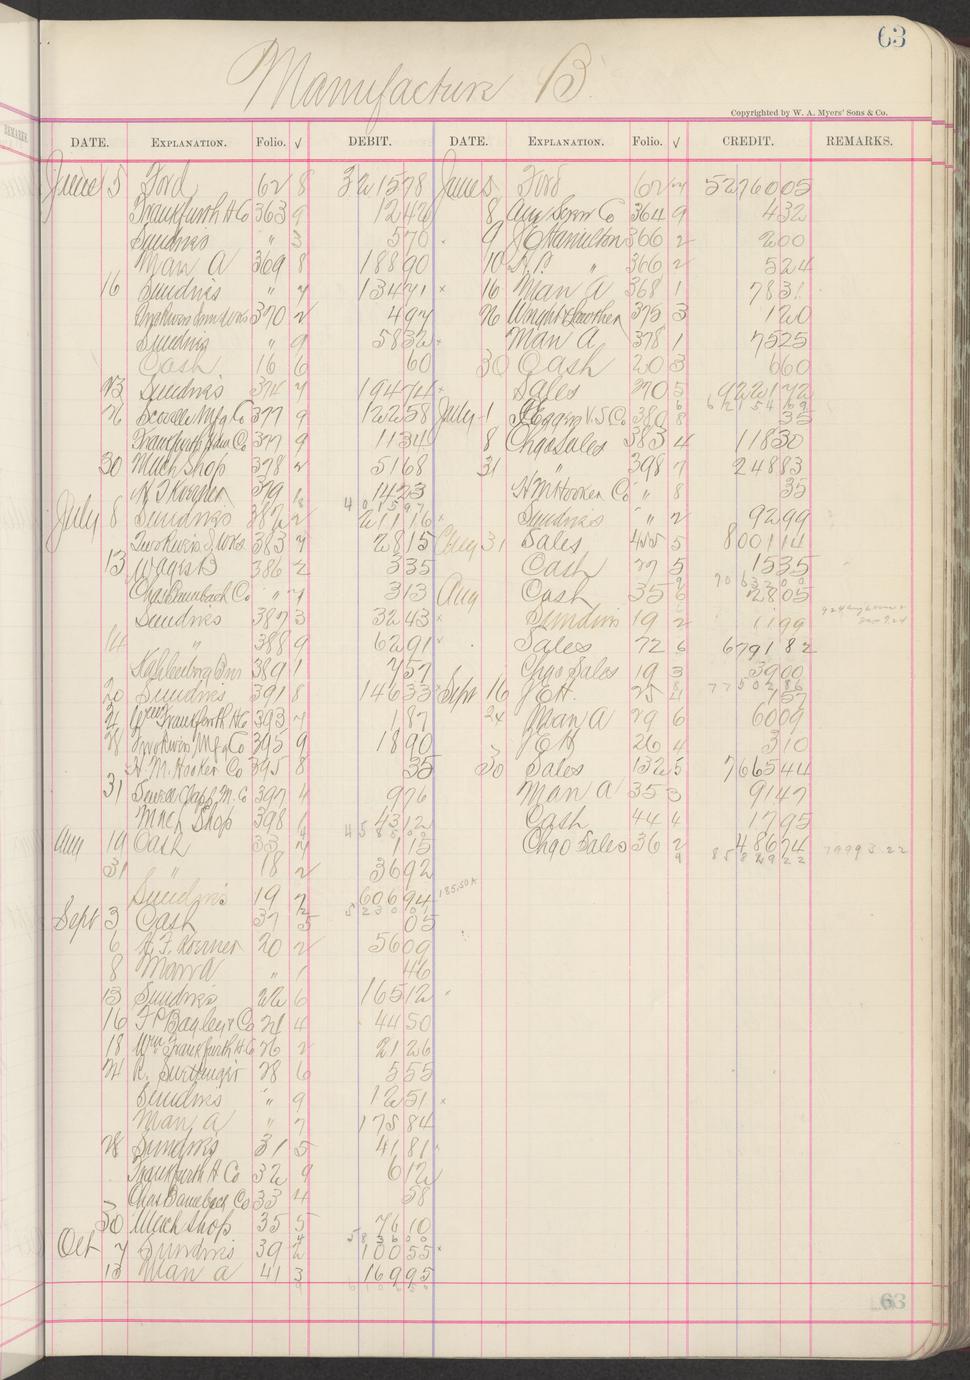 63
Manufacture B.
Copyrighted by W. A. Myers' Sons & Co.
DATE. EXPLANATION. Folio. √ DEBIT. DATE. EXPLANATION. Folio. √ CREDIT. REMARKS.
June 5 Ford 62 8 321578 June 5 Ford 62 5276005
Frankfurth H Co 363 9 1242 8 Am Screw Co 364 9 432
Sundries " 3 570 9 J E Hamilton 366 2 200
Man A 369 8 18890 10 " 366 2 524
16 Sundries " 7 13471 × 16 Man A 368 1 783
370 2 497 26 Wright & Lawther 375 3 120
Sundries " 9 5832 × Man A 378 1 7525
Cash 16 6 60 30 Cash 20 3 660
23 Sundries 374 7 19474 × Sales 270 5 922172
26 Scoville Mfg Co 377 9 12258 July 1 380 8 35
Frankfurth Hdw Co 377 9 1134 8 Chgo Sales 383 4 11830
30 Mach Shop 378 2 5168 31 " 398 7 24883
H F Koerner 379 1 1423 H M Hooker Co " 8 35
July 8 Sundries 382 2 21116 × Sundries " 2 9299
383 7 2815 Aug 31 Sales 455 5 800114
13 Wages B 386 2 335 Cash 27 5 1535
Chas Baumbach Co " 7 313 Aug Cash 35 6 2805
Sundries 387 3 3243 × Sundries 19 2 1199
14 " 388 9 6291 × Sales 72 6 679182
389 1 757 Chgo Sales 19 3 3900
20 Sundries 391 8 14633 Sept 16 J E H. 25 57
21 Wm Frankfurth H Co 393 7 187 24 Man A 29 6 6009
28 Mfg Co 395 9 1890 J E H 26 4 310
H. M. Hooker Co 395 8 35 30 Sales 132 5 766544
31 Sewell Clapp M. Co 397 4 976 Man A 35 3 9147
Mach Shop 398 6 4312 Cash 44 4 1795
Aug 19 Cash 33 7 115 Chgo Sales 36 2 48674 79993.22
31 " 18 2 3692
Sundries 19 7 60694
Sept 3 Cash 37 5 05
6 H. F. Koerner 20 2 5609
8 Man A " 1 46
13 Sundries 22 6 16512
16 F P Bagley & Co 24 4 4450
18 Wm Frankfurth H Co 26 2 2126
24 R. 28 6 555
Sundries " 9 1251 ×
Man A " 7 17584
28 Sundries 31 5 4181
Frankfurth H Co 32 9 612
Chas Baumbach Co 33 4 58
30 Mach Shop 35 5 7610
Oct 7 Sundries 39 2 10055 ×
13 Man A 41 3 16995
63